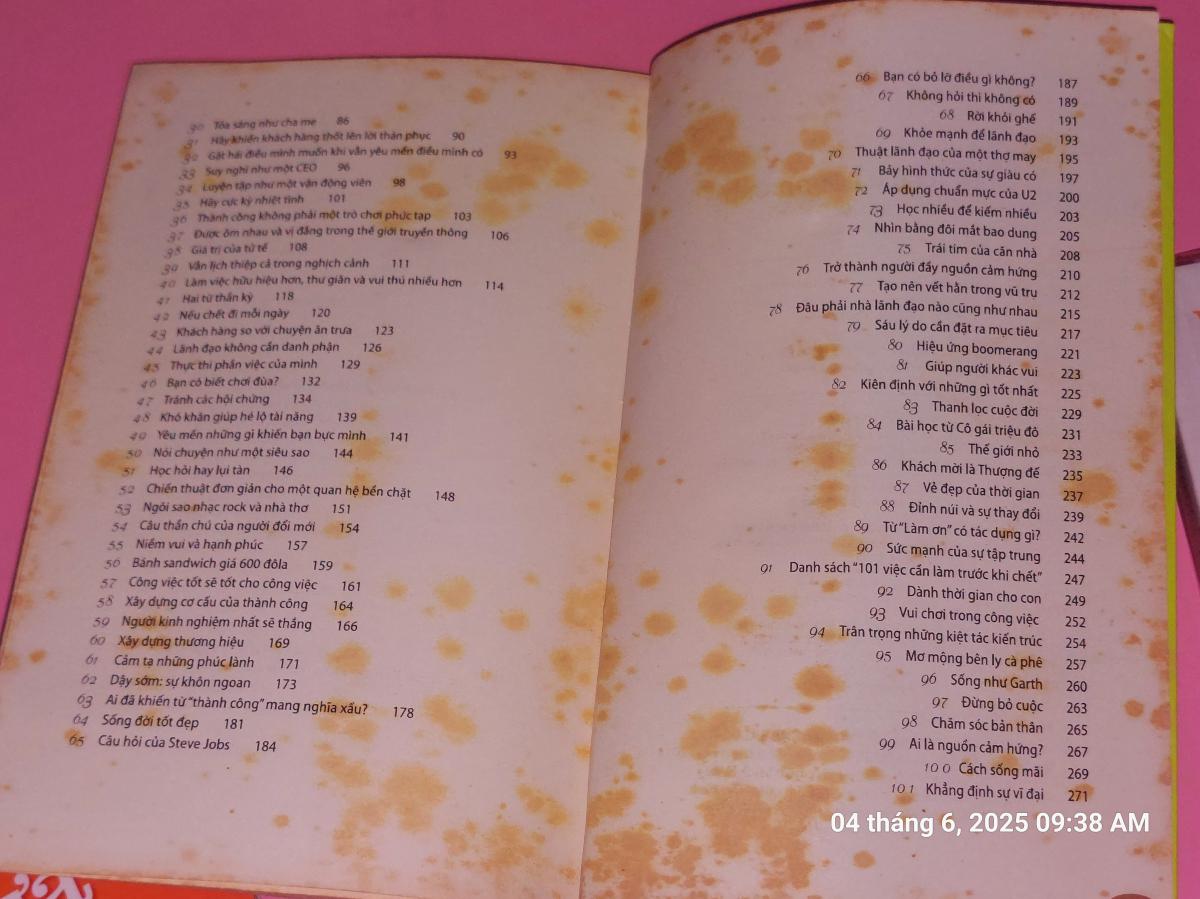 30 Tỏa sáng như cha mẹ 86
31 Hãy khiến khách hàng thốt lên lời thán phục 90
32 Gặt hái điều mình muốn khi vẫn yêu mến điều mình có 93
33 Suy nghĩ như một CEO 96
34 Luyện tập như một vận động viên 98
35 Hãy cực kỳ nhiệt tình 101
36 Thành công không phải một trò chơi phức tạp 103
37 Được ôm nhau và vị đắng trong thế giới truyền thông 106
38 Giá trị của tử tế 108
39 Vẫn lịch thiệp cả trong nghịch cảnh 111
40 Làm việc hữu hiệu hơn, thư giãn và vui thú nhiều hơn 114
41 Hai từ thần kỳ 118
42 Nếu chết đi mỗi ngày 120
43 Khách hàng so với chuyện ăn trưa 123
44 Lãnh đạo không cần danh phận 126
45 Thực thi phần việc của mình 129
46 Bạn có biết chơi đùa? 132
47 Tránh các hội chứng 134
48 Khó khăn giúp hé lộ tài năng 139
49 Yêu mến những gì khiến bạn bực mình 141
50 Nói chuyện như một siêu sao 144
51 Học hỏi hay lụi tàn 146
52 Chiến thuật đơn giản cho một quan hệ bền chặt 148
53 Ngôi sao nhạc rock và nhà thơ 151
54 Câu thần chú của người đổi mới 154
55 Niềm vui và hạnh phúc 157
56 Bánh sandwich giá 600 đôla 159
57 Công việc tốt sẽ tốt cho công việc 161
58 Xây dựng cơ cấu của thành công 164
59 Người kinh nghiệm nhất sẽ thắng 166
60 Xây dựng thương hiệu 169
61 Cảm tạ những phúc lành 171
62 Dậy sớm: sự khôn ngoan 173
63 Ai đã khiến từ "thành công" mang nghĩa xấu? 178
64 Sống đời tốt đẹp 181
65 Câu hỏi của Steve Jobs 184
66 Bạn có bỏ lỡ điều gì không? 187
67 Không hỏi thì không có 189
68 Rời khỏi ghế 191
69 Khỏe mạnh để lãnh đạo 193
70 Thuật lãnh đạo của một thợ may 195
71 Bảy hình thức của sự giàu có 197
72 Áp dụng chuẩn mực của U2 200
73 Học nhiều để kiếm nhiều 203
74 Nhìn bằng đôi mắt bao dung 205
75 Trái tim của căn nhà 208
76 Trở thành người đầy nguồn cảm hứng 210
77 Tạo nên vết hằn trong vũ trụ 212
78 Đâu phải nhà lãnh đạo nào cũng như nhau 215
79 Sáu lý do cần đặt ra mục tiêu 217
80 Hiệu ứng boomerang 221
81 Giúp người khác vui 223
82 Kiên định với những gì tốt nhất 225
83 Thanh lọc cuộc đời 229
84 Bài học từ Cô gái triệu đô 231
85 Thế giới nhỏ 233
86 Khách mời là Thượng đế 235
87 Vẻ đẹp của thời gian 237
88 Đỉnh núi và sự thay đổi 239
89 Từ "Làm ơn" có tác dụng gì? 242
90 Sức mạnh của sự tập trung 244
91 Danh sách "101 việc cần làm trước khi chết" 247
92 Dành thời gian cho con 249
93 Vui chơi trong công việc 252
94 Trân trọng những kiệt tác kiến trúc 254
95 Mơ mộng bên ly cà phê 257
96 Sống như Garth 260
97 Đừng bỏ cuộc 263
98 Chăm sóc bản thân 265
99 Ai là nguồn cảm hứng? 267
100 Cách sống mãi 269
101 Khẳng định sự vĩ đại 271
04 tháng 6, 2025 09:38 AM